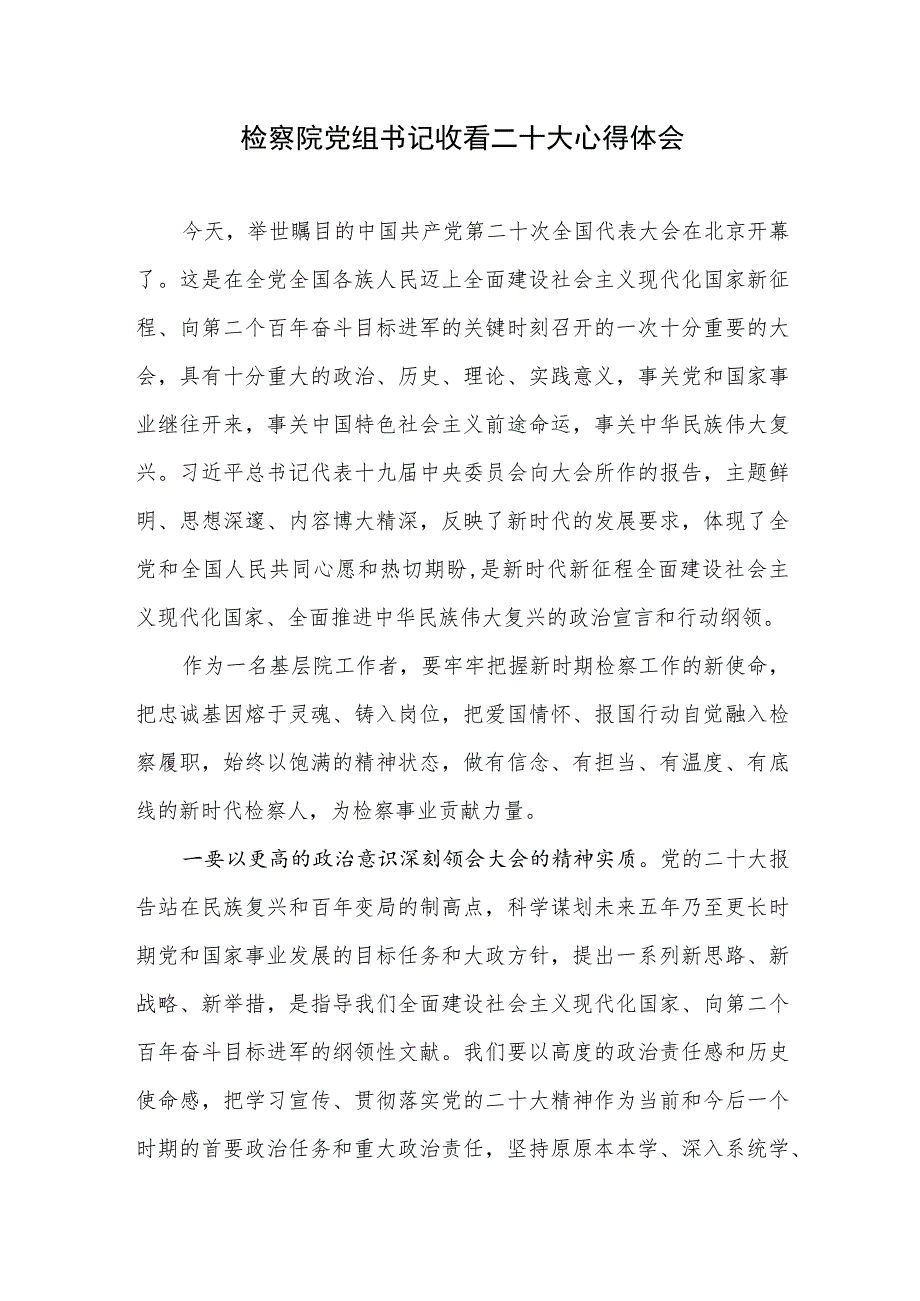 检察院党组书记收看二十大心得体会
今天，举世瞩目的中国共产党第二十次全国代表大会在北京开幕
了。这是在全党全国各族人民迈上全面建设社会主义现代化国家新征
程、向第二个百年奋斗目标进军的关键时刻召开的一次十分重要的大
会，具有十分重大的政治、历史、理论、实践意义，事关党和国家事
业继往开来，事关中国特色社会主义前途命运，事关中华民族伟大复
兴。习近平总书记代表十九届中央委员会向大会所作的报告，主题鲜
明、思想深邃、内容博大精深，反映了新时代的发展要求，体现了全
党和全国人民共同心愿和热切期盼,是新时代新征程全面建设社会主
义现代化国家、全面推进中华民族伟大复兴的政治宣言和行动纲领。
作为一名基层院工作者，要牢牢把握新时期检察工作的新使命，
把忠诚基因熔于灵魂、铸入岗位，把爱国情怀、报国行动自觉融入检
察履职，始终以饱满的精神状态，做有信念、有担当、有温度、有底
线的新时代检察人，为检察事业贡献力量。
一要以更高的政治意识深刻领会大会的精神实质。党的二十大报
告站在民族复兴和百年变局的制高点，科学谋划未来五年乃至更长时
期党和国家事业发展的目标任务和大政方针，提出一系列新思路、新
战略、新举措，是指导我们全面建设社会主义现代化国家、向第二个
百年奋斗目标进军的纲领性文献。我们要以高度的政治责任感和历史
使命感，把学习宣传、贯彻落实党的二十大精神作为当前和今后一个
时期的首要政治任务和重大政治责任，坚持原原本本学、深入系统学、